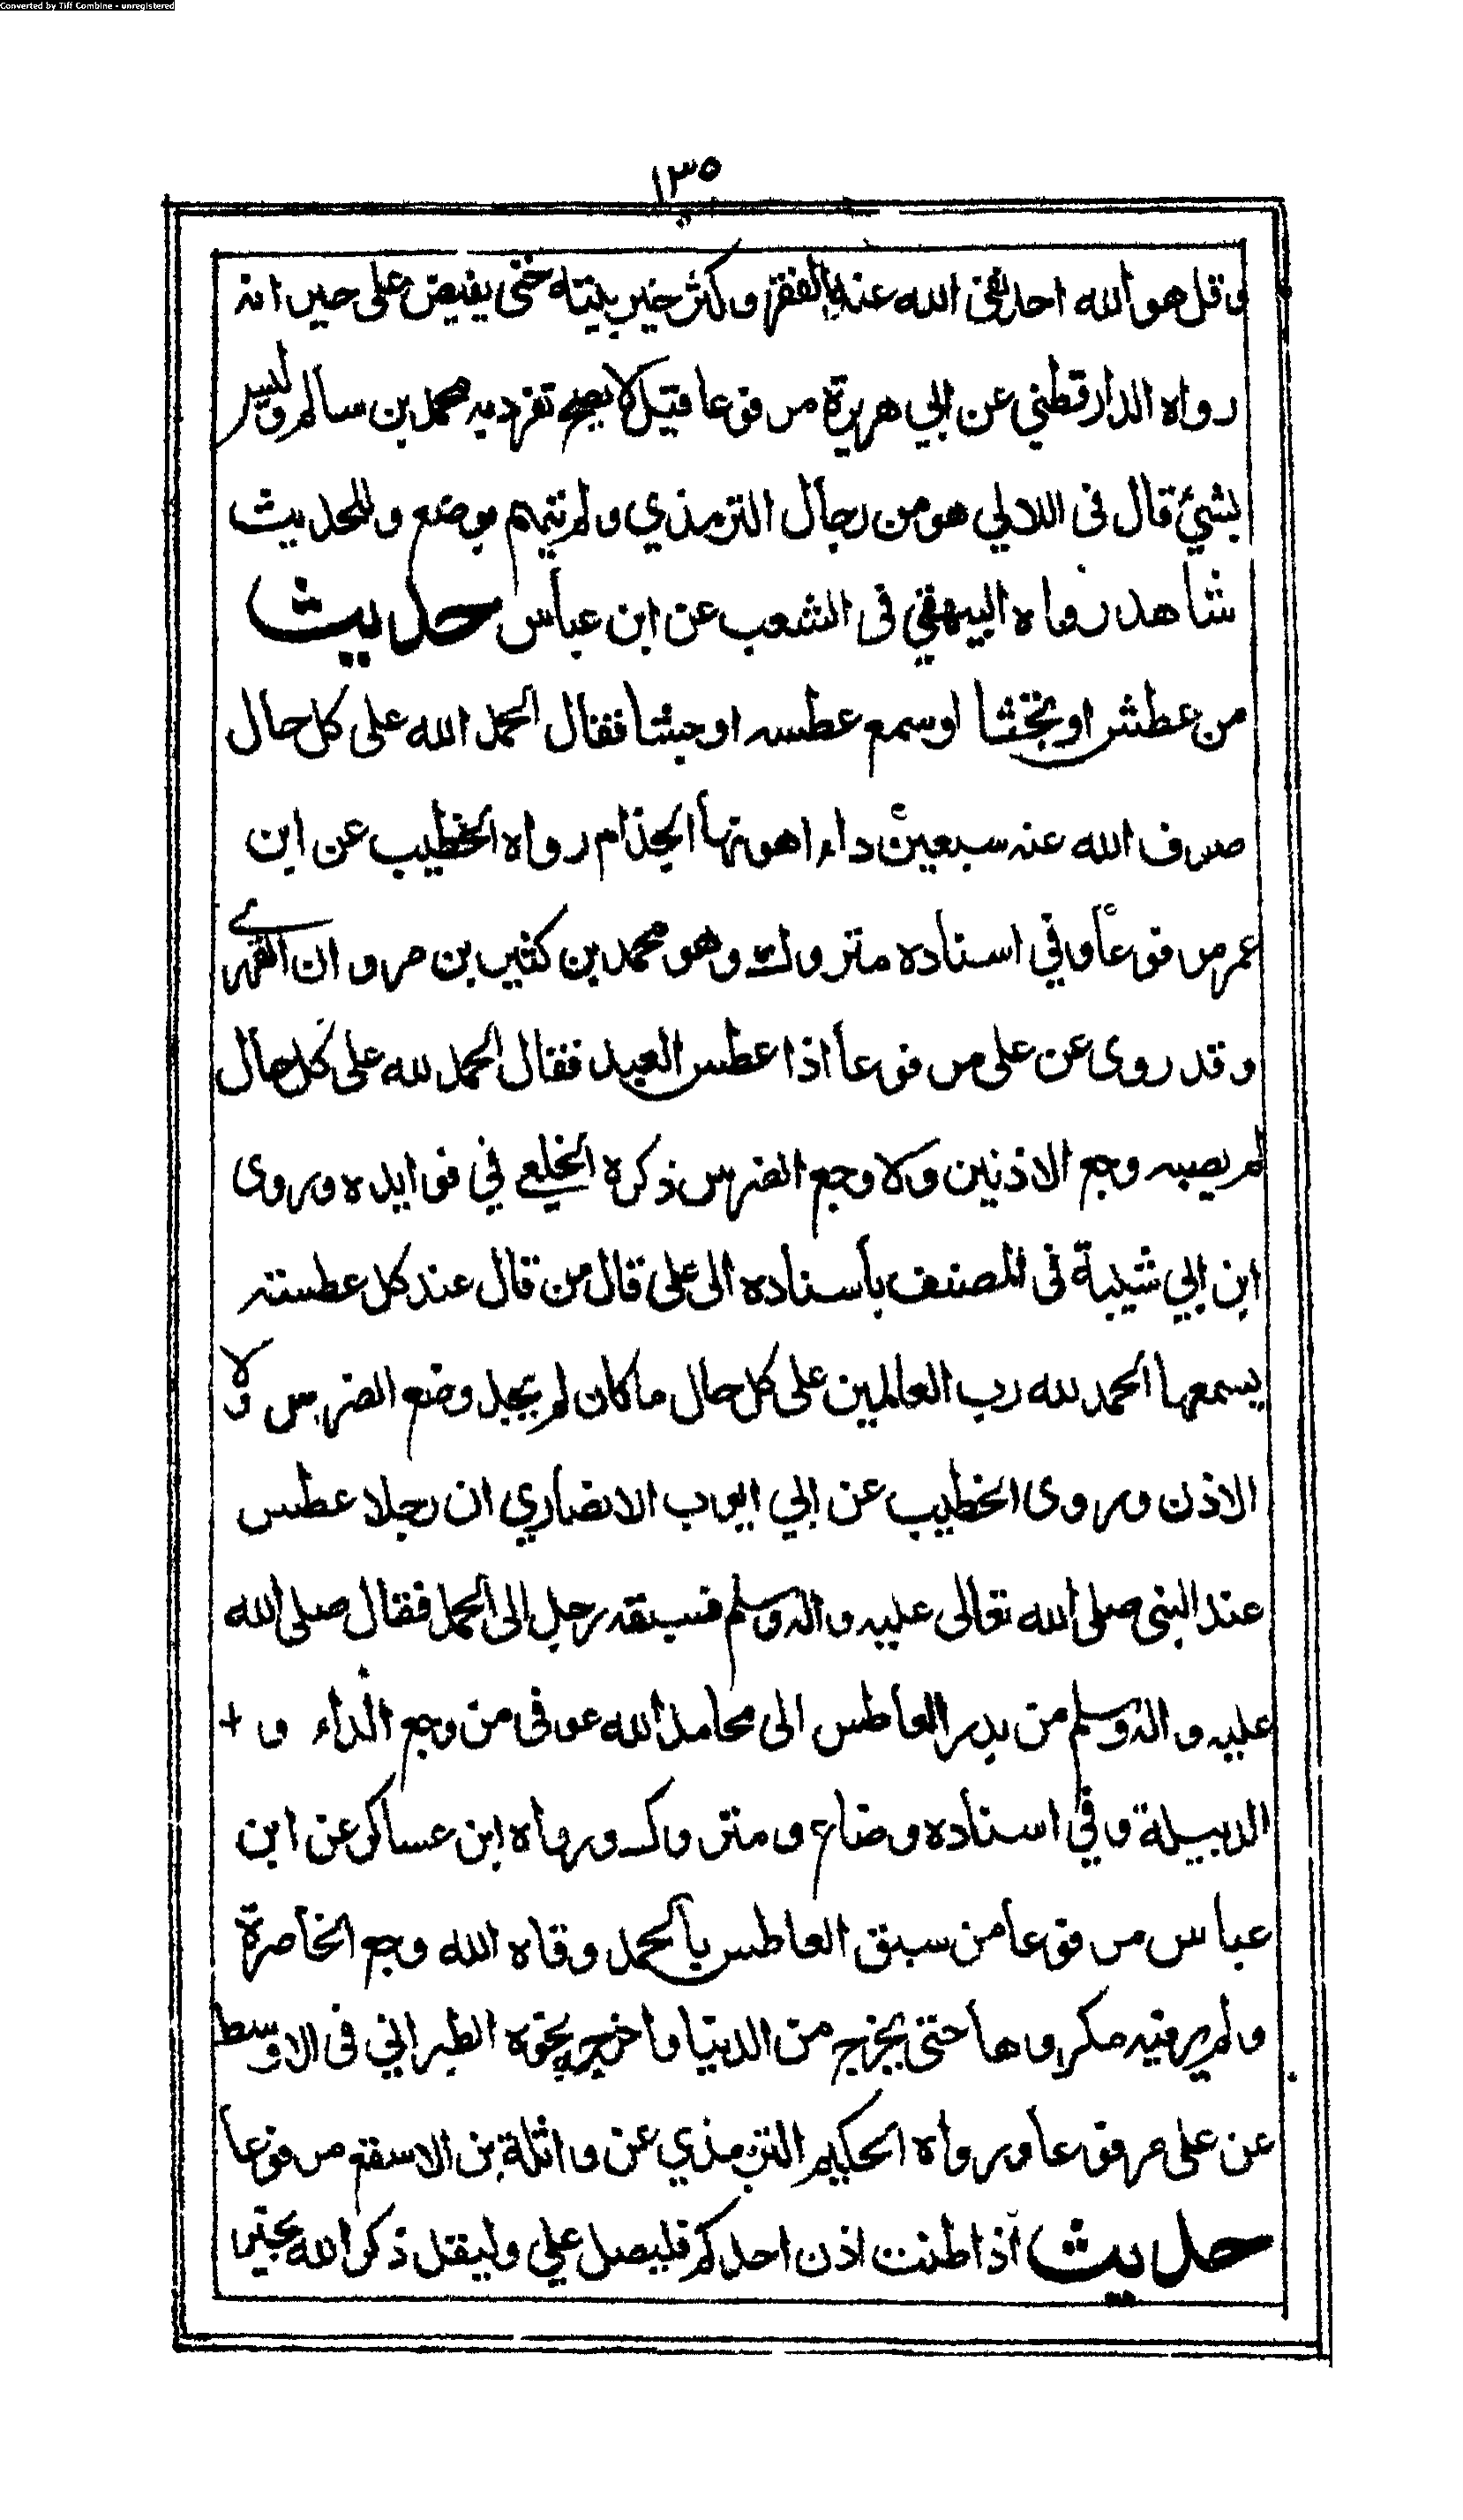 Converted by Tiff Combine - unregistered
١٣٥
وقل هو الله احد نفى الله عنه الفقر وكثر خير بيته حتى يفيض على جيرانه
رواه الدارقطني عن ابي هريرة مرفوعا قيل لا يصح تفرد به محمد بن سالم وليس
بشئ قال فى اللالي هو من رجال الترمذي ولم يتهم بوضع وللحديث
شاهد رواه البيهقي فى الشعب عن ابن عباس حديث
من عطش او تجشا او سمع عطسه او جشا فقال الحمد الله على كل حال
صرف الله عنه سبعين داء اهونها الجذام رواه الخطيب عن ابن
عمر مرفوعا وفي اسناده متروك وهو محمد بن كثير بن مروان الفهرى
وقد روى عن على مرفوعا اذا عطس العبد فقال الحمد لله على كل حال
لم يصبه وجع الاذنين ولا وجع الضرس ذكره الخلعي في فوايده وروى
ابن ابي شيبة فى المصنف باسناده الى على قال من قال عند كل عطسته
يسمعها الحمد لله رب العالمين على كل حال ما كان لم يجد وضع الضرس ولا
الاذن وروى الخطيب عن ابي ايوب الانصاري ان رجلا عطس
عند النبى صلى الله تعالى عليه واله وسلم فسبقه رجل الى الحمد فقال صلى الله
عليه واله وسلم من بدر العاطس الى محامد الله عوفى من وجع الداء و +
الدبيلة وفي اسناده وضاع ومتروك ورواه ابن عساكر عن ابن
عباس مرفوعا من سبق العاطس بالحمد وقاه الله وجع الخاصرة
ولم ير فيه مكروها حتى يخرج من الدنيا واخرجه بنحوه الطبراني فى الاوسط
عن على مرفوعا ورواه الحكيم الترمذي عن واثلة بن الاسقع مرفوعا
حديث اذا طنت اذن احدكم فليصل علي وليقل ذكر الله بخير